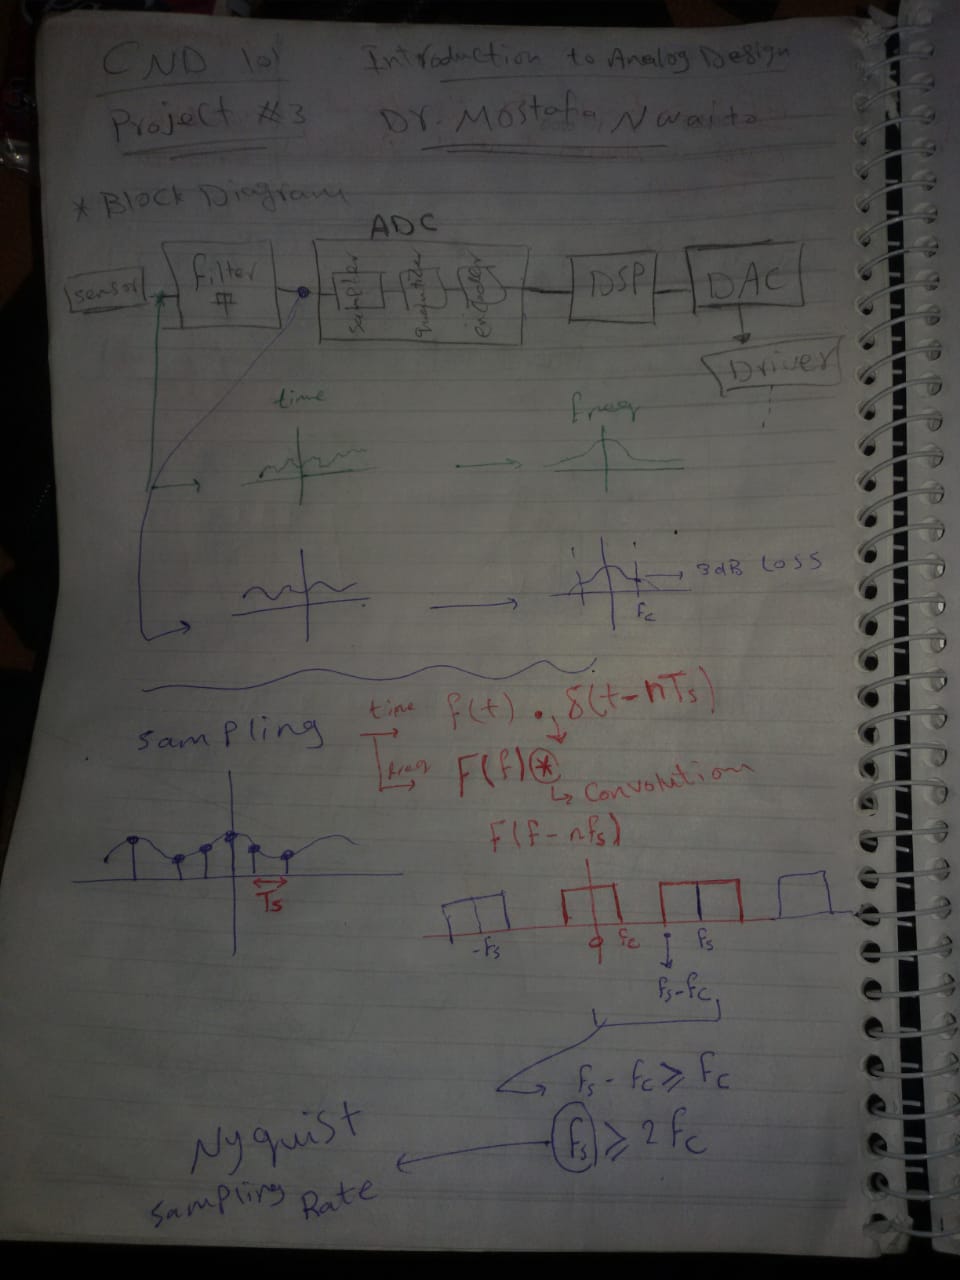 CND 101 Introduction to Analog Design
Project #3 Dr. Mostafa Nwaito
* Block Diagram
ADC
sensor filter sampler quantizer encoder DSP DAC
Driver
time freq
3dB Loss
fc
sampling time f(t) . δ(t-nTs)
freq F(f) *
↳ Convolution
F(f-nfs)
Ts
-fs 0 fc fs
fs-fc
fs - fc ≥ fc
fs ≥ 2fc
Nyquist
sampling Rate